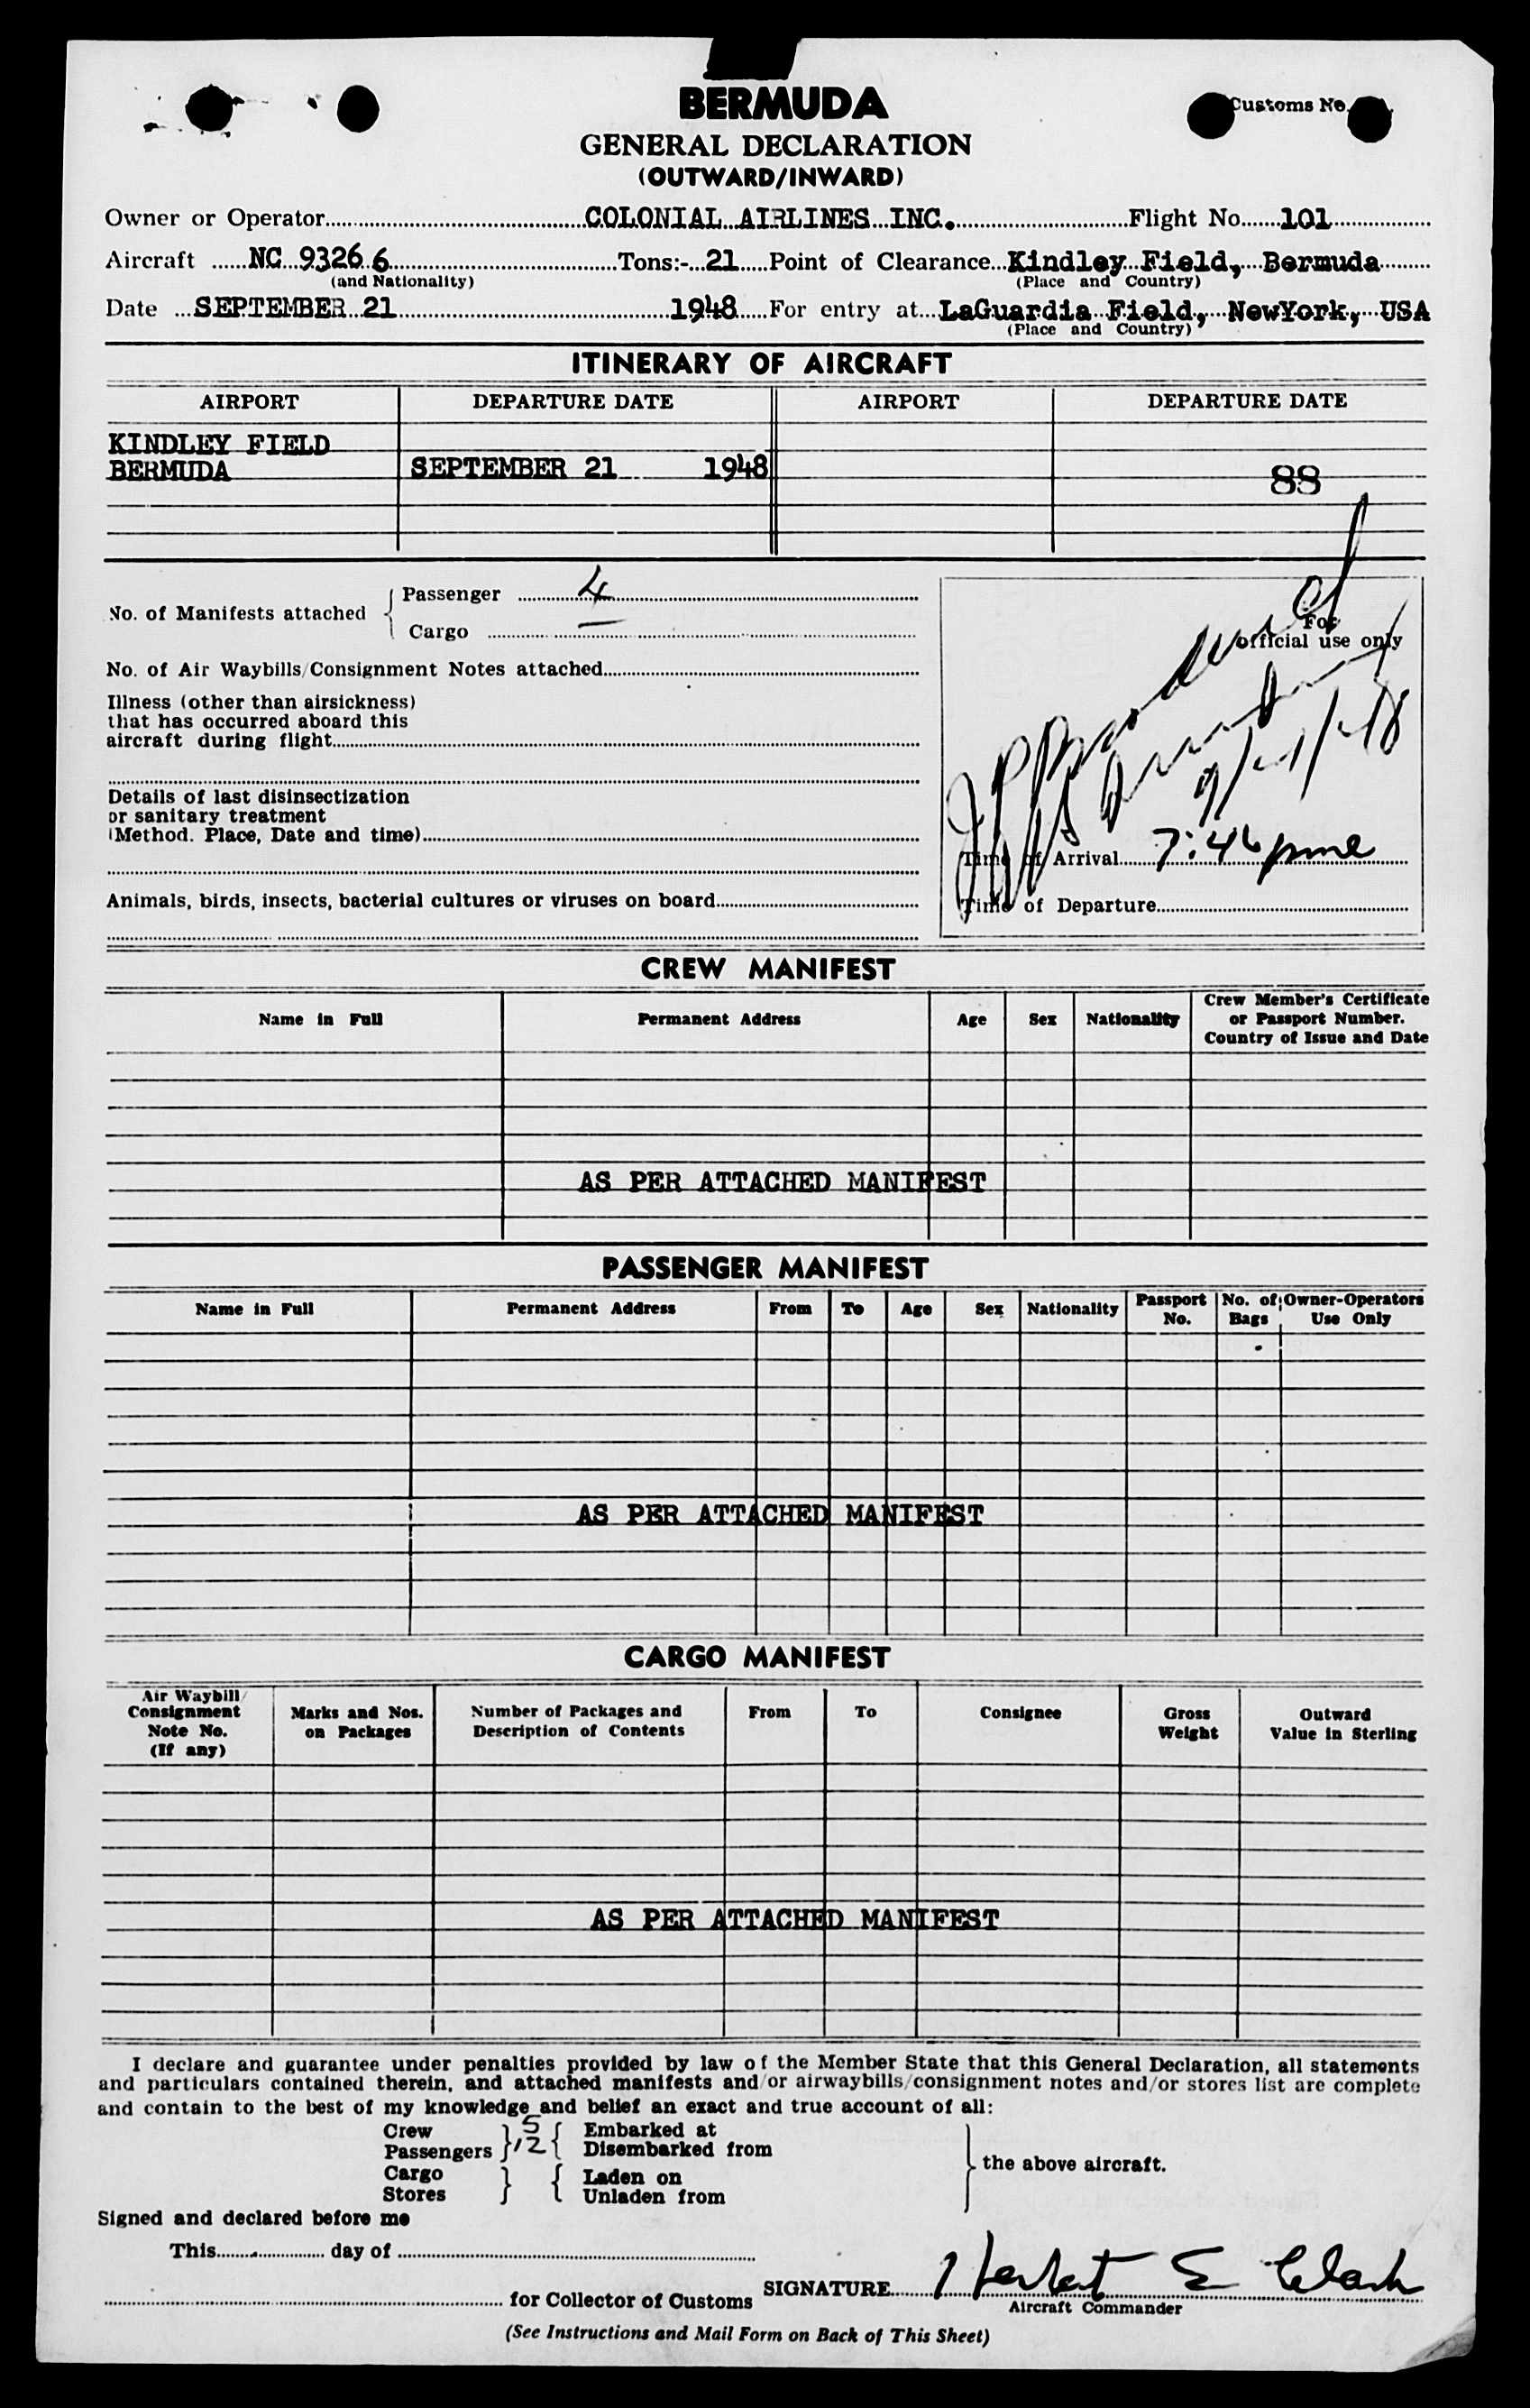 BERMUDA
Customs No.
GENERAL DECLARATION
(OUTWARD/INWARD)
Owner or Operator COLONIAL AIRLINES INC. Flight No. 101
Aircraft NC 93266 Tons:- 21 Point of Clearance Kindley Field, Bermuda
(and Nationality) (Place and Country)
Date SEPTEMBER 21 1948 For entry at LaGuardia Field, NewYork, USA
(Place and Country)
ITINERARY OF AIRCRAFT
AIRPORT DEPARTURE DATE AIRPORT DEPARTURE DATE
KINDLEY FIELD
BERMUDA SEPTEMBER 21 1948
88
No. of Manifests attached { Passenger 4
Cargo —
No. of Air Waybills/Consignment Notes attached
Illness (other than airsickness)
that has occurred aboard this
aircraft during flight
Details of last disinsectization
or sanitary treatment
(Method. Place, Date and time)
Animals, birds, insects, bacterial cultures or viruses on board
For
official use only
9/21/48
Time of Arrival 7:46 pm
Time of Departure
CREW MANIFEST
Name in Full Permanent Address Age Sex Nationality Crew Member's Certificate
or Passport Number.
Country of Issue and Date
AS PER ATTACHED MANIFEST
PASSENGER MANIFEST
Name in Full Permanent Address From To Age Sex Nationality Passport No. No. of Bags Owner-Operators Use Only
AS PER ATTACHED MANIFEST
CARGO MANIFEST
Air Waybill/
Consignment
Note No.
(If any)
Marks and Nos.
on Packages
Number of Packages and
Description of Contents
From To Consignee
Gross
Weight
Outward
Value in Sterling
AS PER ATTACHED MANIFEST
I declare and guarantee under penalties provided by law of the Member State that this General Declaration, all statements
and particulars contained therein, and attached manifests and/or airwaybills/consignment notes and/or stores list are complete
and contain to the best of my knowledge and belief an exact and true account of all:
Crew } 5 { Embarked at
Passengers } 12 { Disembarked from
the above aircraft.
Cargo } { Laden on
Stores } { Unladen from
Signed and declared before me
This day of
SIGNATURE Herbert E Clark
for Collector of Customs
Aircraft Commander
(See Instructions and Mail Form on Back of This Sheet)